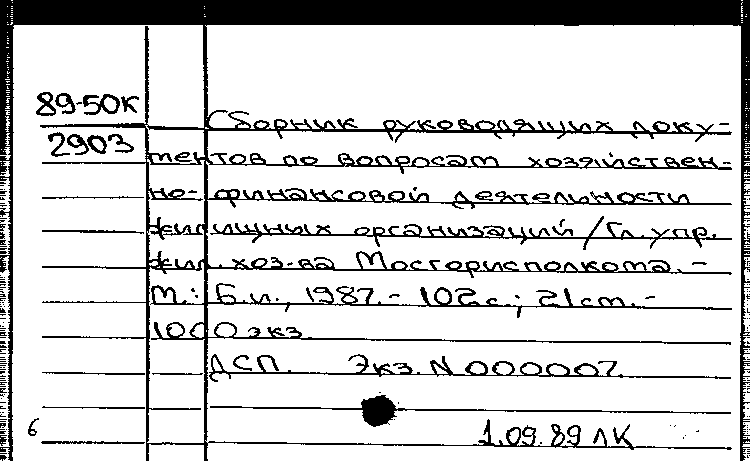 89-50К
2903
Сборник руководящих доку-
ментов по вопросам хозяйствен-
но-финансовой деятельности
жилищных организаций / Гл. упр.
жил. хоз-ва Мосгорисполкома. -
М.: Б.и., 1987. - 102 с.; 21 см. -
1000 экз.
ДСП. Экз. N 000007.
6
1.09.89 ЛК